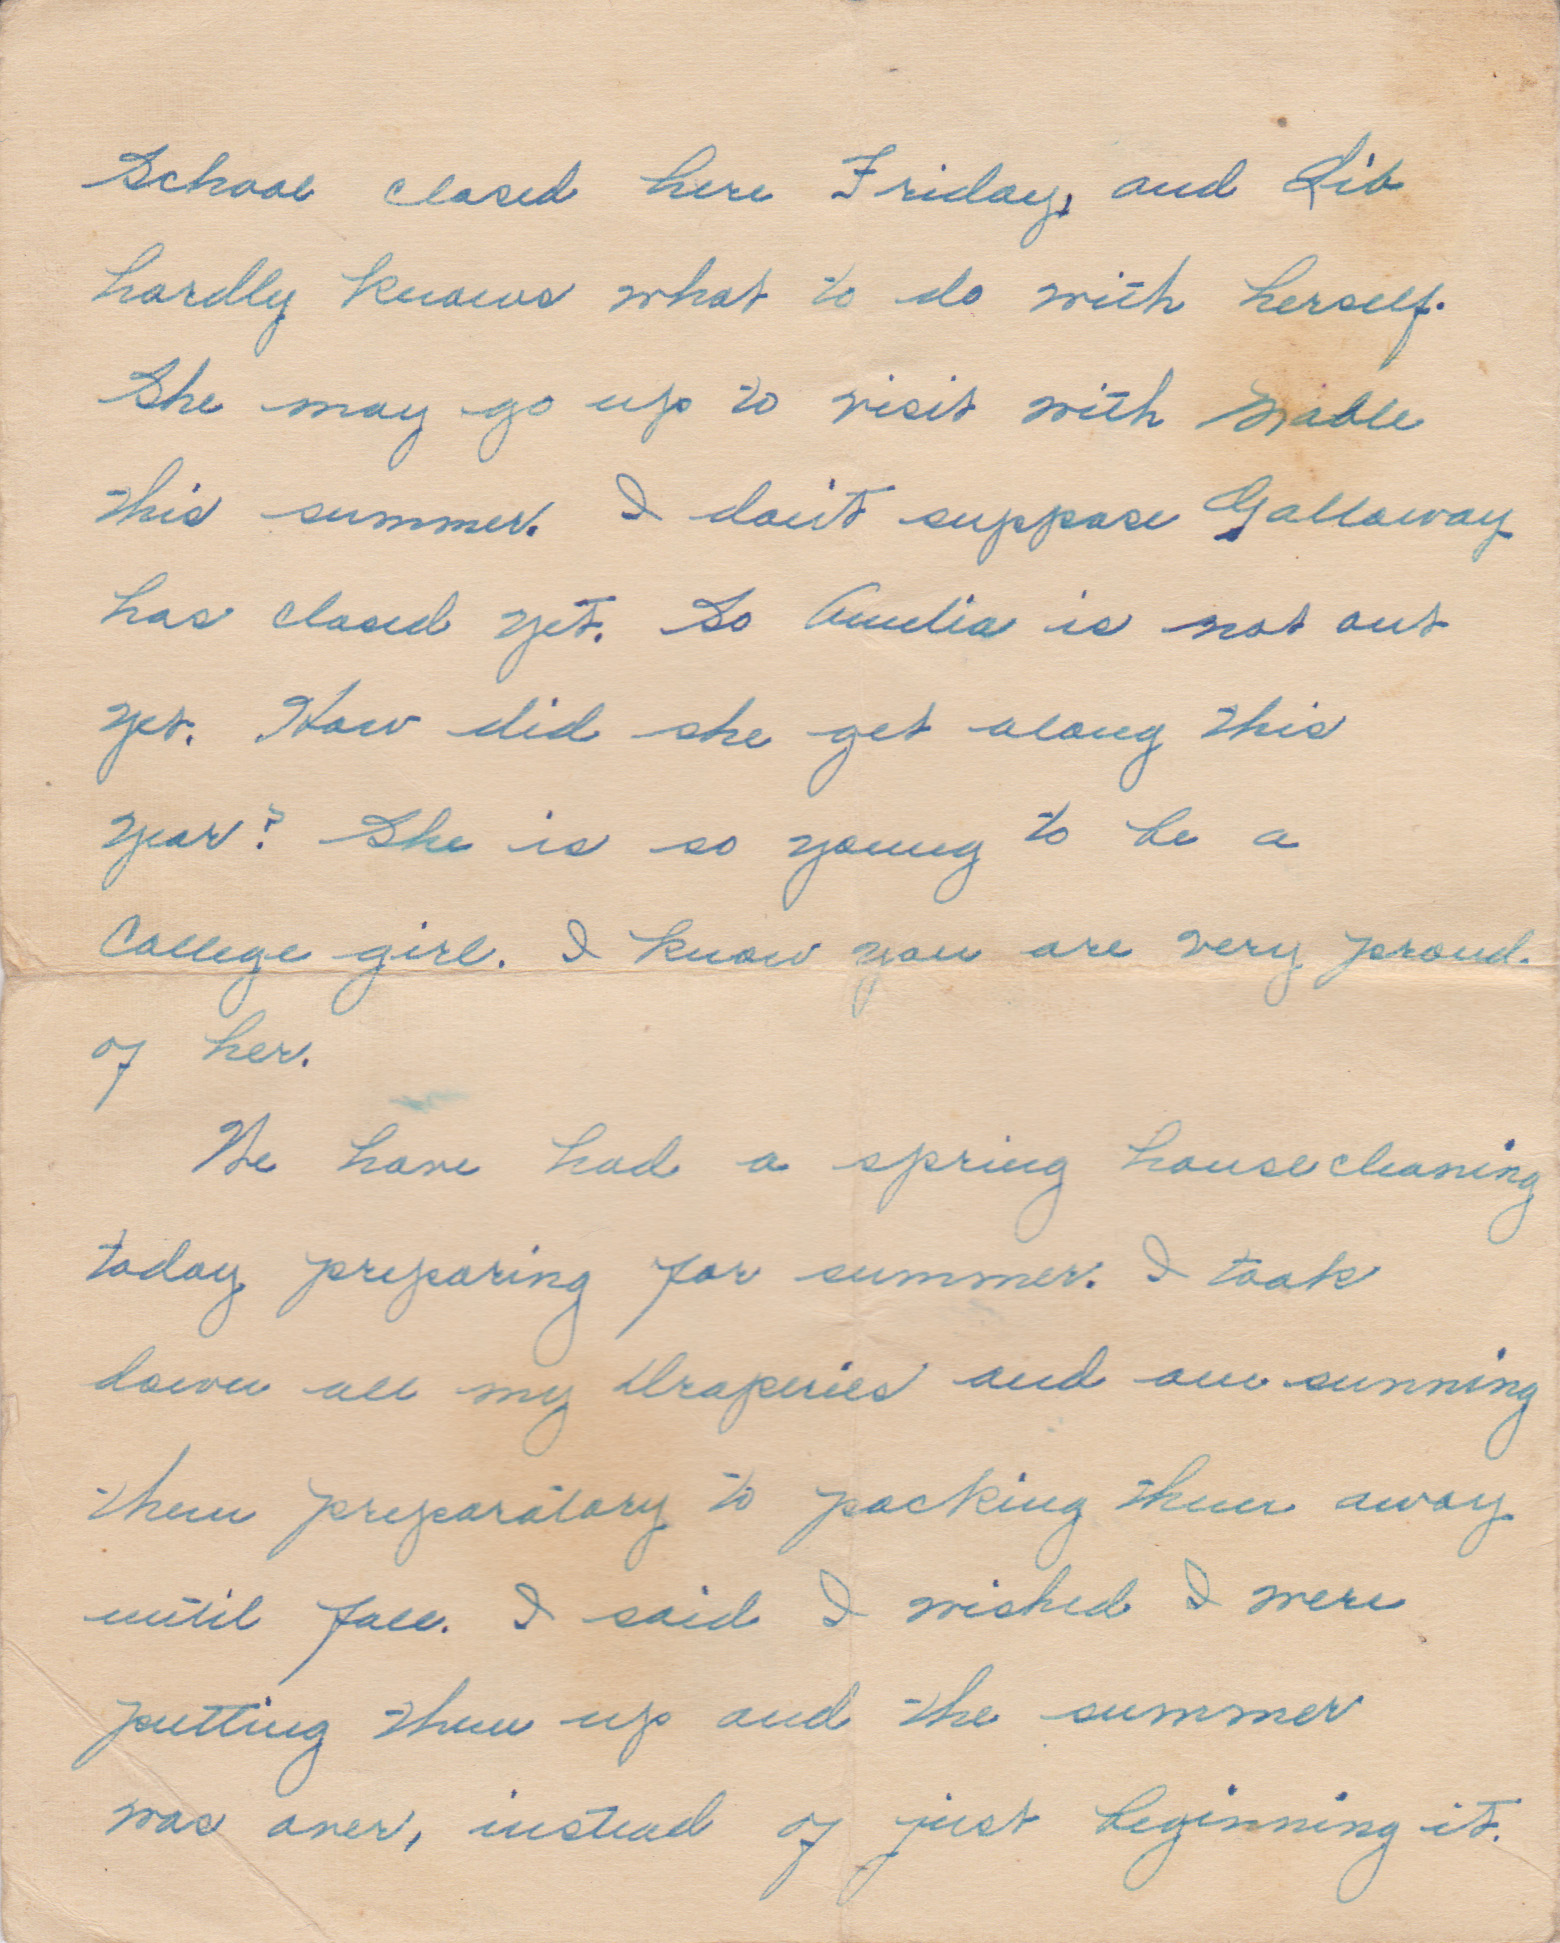 School closed here Friday, and Lib
hardly knows what to do with herself.
She may go up to visit with Mable
this summer. I don't suppose Galloway
has closed yet. So Amelia is not out
yet. How did she get along this
year? She is so young to be a
College girl. I know you are very proud.
of her.
We have had a spring housecleaning
today preparing for summer. I took
down all my Draperies and am sunning
them preparatory to packing them away
until fall. I said I wished I were
putting them up and the summer
was over, instead of just beginning it.